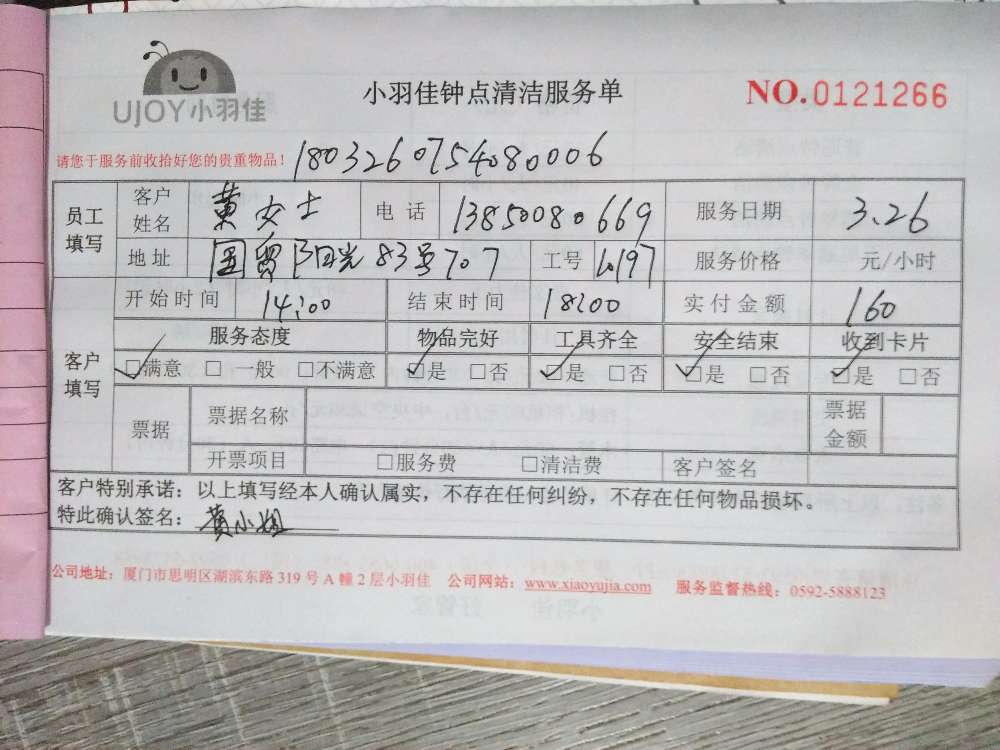 UJOY小羽佳
小羽佳钟点清洁服务单
NO.0121266
请您于服务前收拾好您的贵重物品!
1803260754080006
员工填写 客户姓名 黄女士 电话 13850080669 服务日期 3.26
地址 国贸阳光83号707 工号 10197 服务价格 元/小时
客户填写 开始时间 14:00 结束时间 18:00 实付金额 160
服务态度 物品完好 工具齐全 安全结束 收到卡片
☑满意 □一般 □不满意 ☑是 □否 ☑是 □否 ☑是 □否 ☑是 □否
票据 票据名称 票据金额
开票项目 □服务费 □清洁费 客户签名
客户特别承诺:以上填写经本人确认属实,不存在任何纠纷,不存在任何物品损坏。
特此确认签名:黄小姐
公司地址:厦门市思明区湖滨东路 319 号 A 幢 2 层小羽佳 公司网站:www.xiaoyujia.com 服务监督热线:0592-5888123